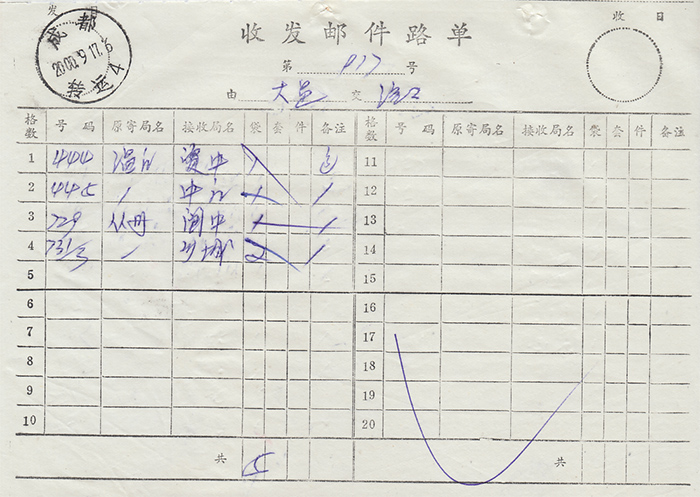 发
成都
2000.9.17.6
转运4
收发邮件路单
收 日
第 号
由 大邑 交
格数 号码 原寄局名 接收局名 袋 套 件 备注 格数 号码 原寄局名 接收局名 袋 套 件 备注
1 444 温江 资中 11
2 445 中江 12
3 729 阆中 13
4 14
5 15
6 16
7 17
8 18
9 19
10 20
共 5 共